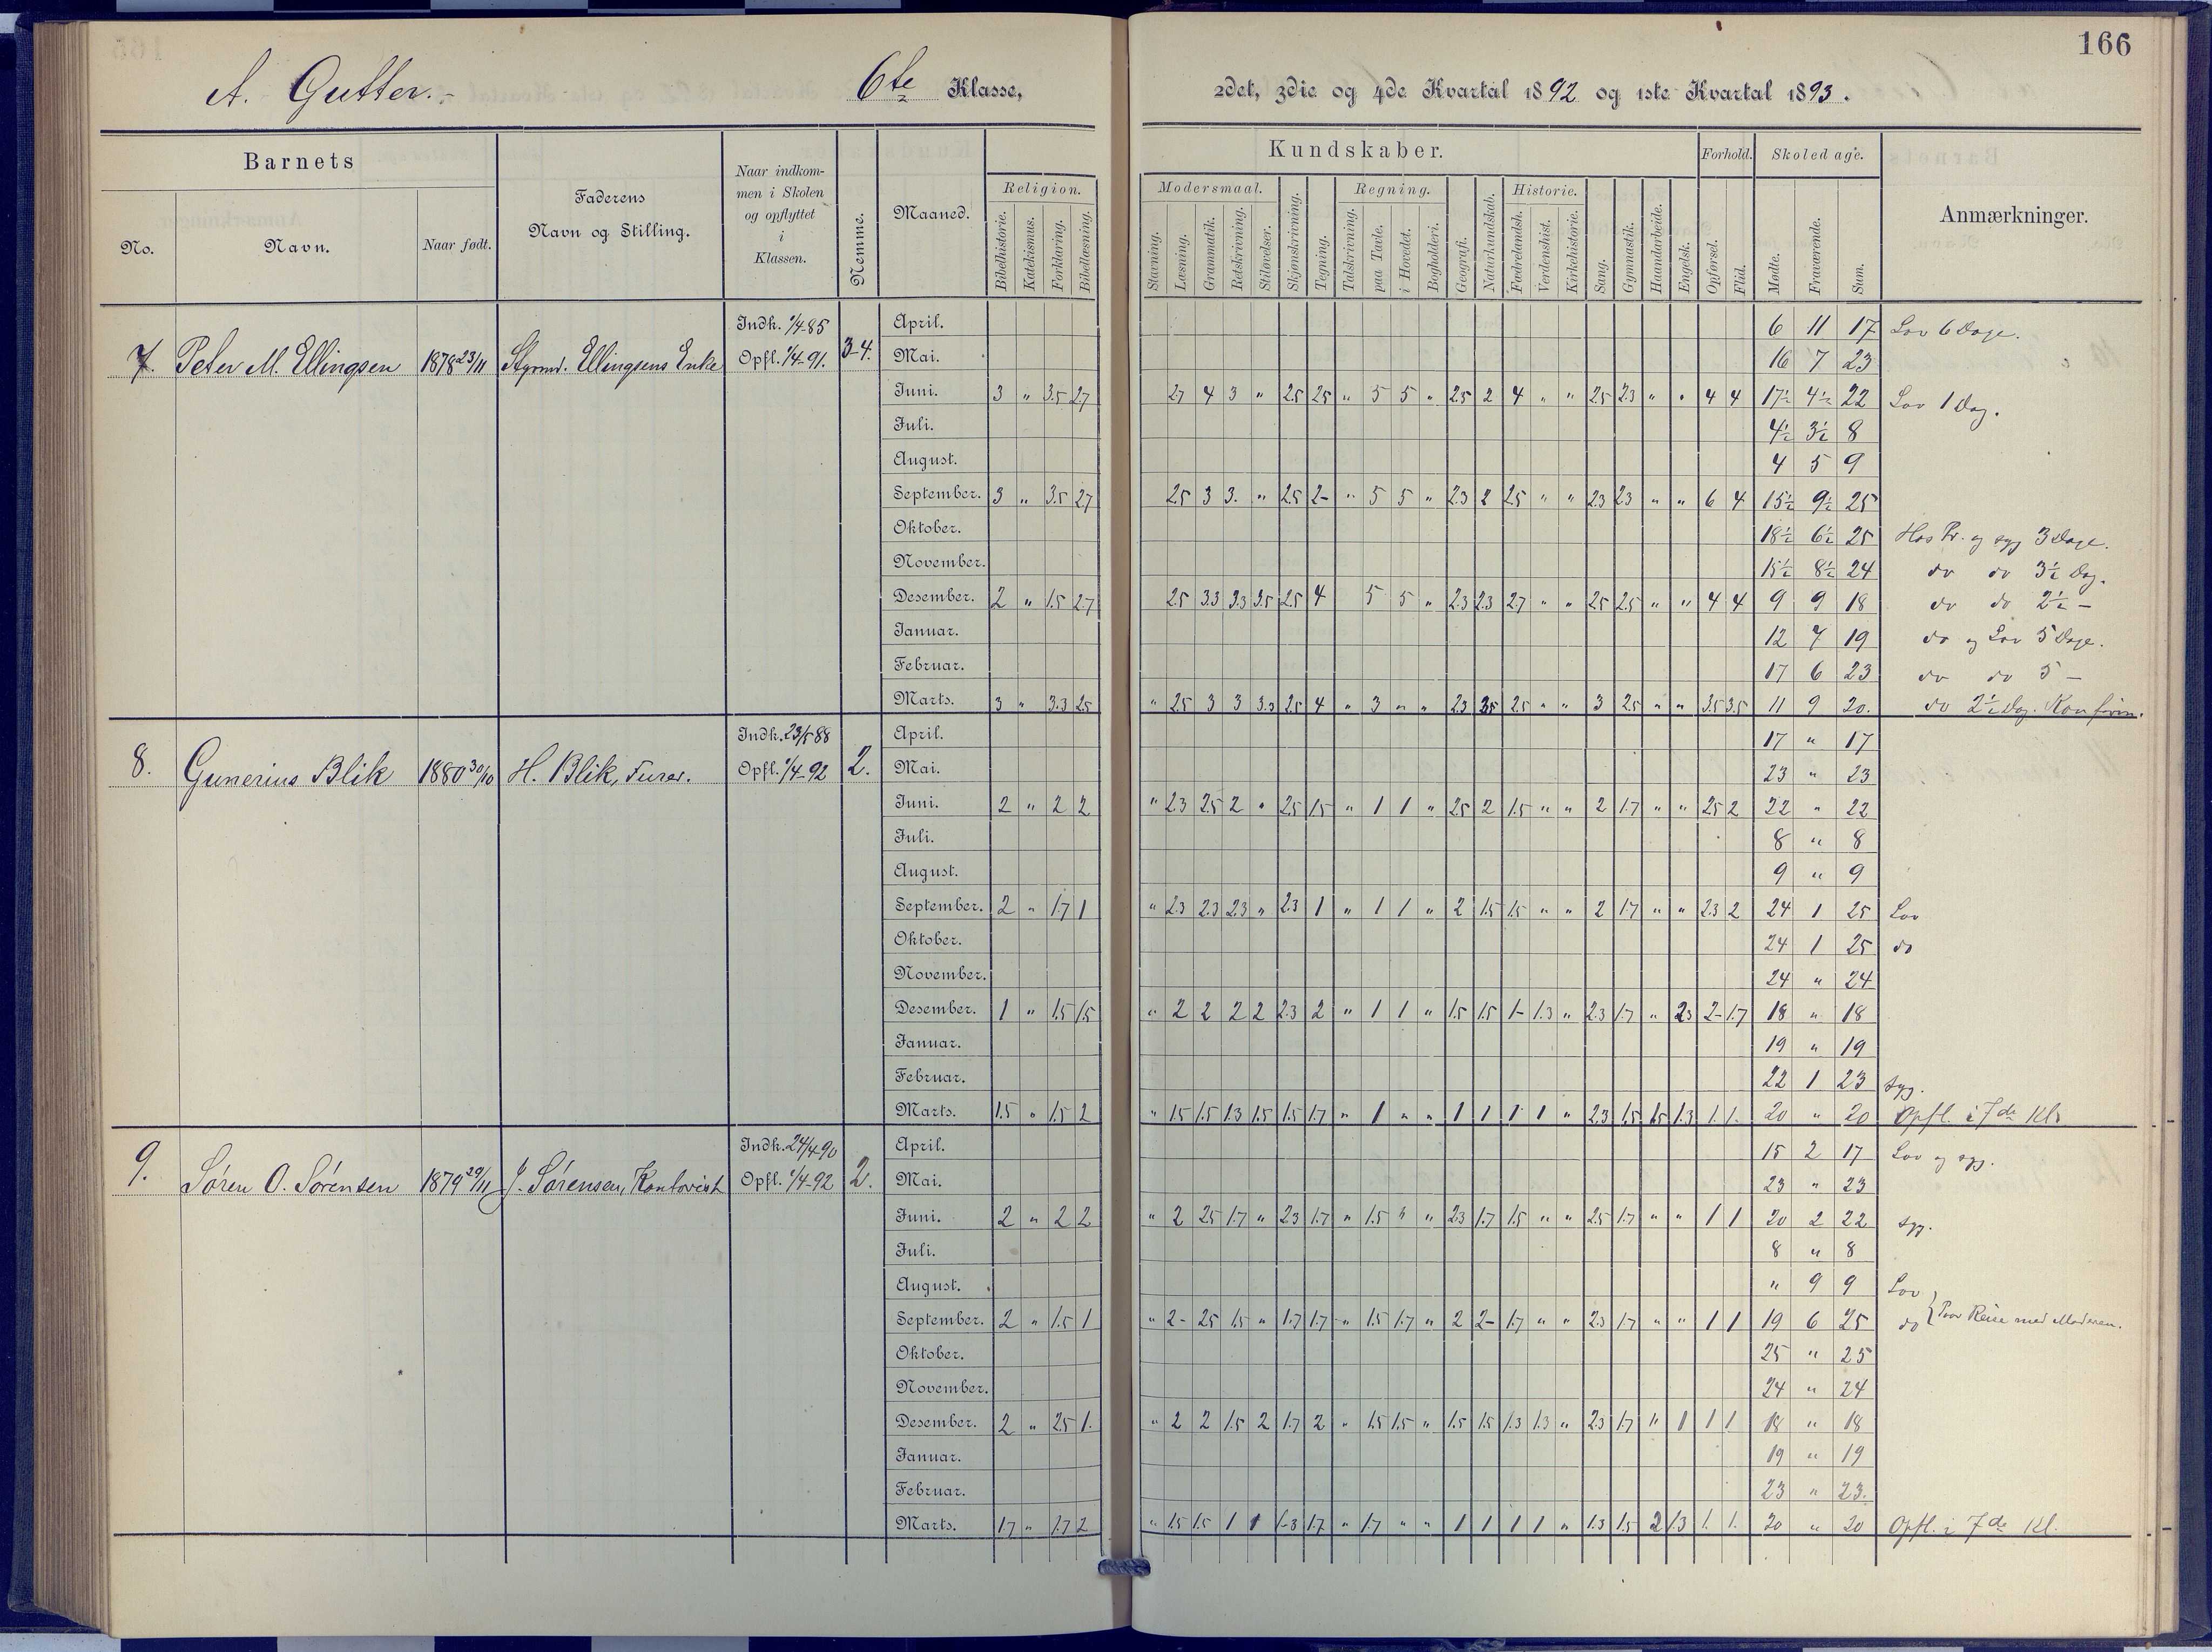 166
A. Gutter.-
6te Klasse,
2det, 3die og 4de Kvartal 1892 og 1ste Kvartal 1893.
Barnets
No.
Navn.
Naar født.
Faderens
Navn og Stilling.
Naar indkom-
men i Skolen
og opflyttet
i
Klassen.
Nemme.
Maaned.
Kundskaber.
Religion.
Bibelhistorie. Katekismus. Forklaring. Bibellæsning.
Modersmaal.
Stavning. Læsning. Grammatik. Retskrivning. Stiløvelser. Skjønskrivning. Tegning.
Regning.
Talskrivning. paa Tavle. i Hovedet. Bogholderi. Geografi. Naturkundskab.
Historie.
Fædrelandsh. Verdenshist. Kirkehistorie. Sang. Gymnastik. Haandarbeide. Engelsk.
Forhold.
Opførsel. Flid.
Skoledage.
Mødte. Fraværende. Sum.
Anmærkninger.
7. Peter M. Ellingsen 1878 23/11 Styrmd. Ellingsens Enke Indk. 1/4-85 Opfl. 1/4-91. 3-4.
April. 6 11 17 Lov 6 Dage.
Mai. 16 7 23
Juni. 3 " 3.5 2.7 2.7 4 3 " 2.5 2.5 " 5 5 " 2.5 2 4 " " 2.5 2.3 " " 4 4 17½ 4½ 22 Lov 1 Dag.
Juli. 4½ 3½ 8
August. 4 5 9
September. 3 " 3.5 2.7 2.5 3 3. " 2.5 2- " 5 5 " 2.3 2 2.5 " " 2.3 2.3 " " 6 4 15½ 9½ 25
Oktober. 18½ 6½ 25 Hos Pr. og syg 3 Dage.
November. 15½ 8½ 24 do do 3½ Dag.
Desember. 2 " 1.5 2.7 2.5 3.3 3.3 3.5 2.5 4 5 5 " 2.3 2.3 2.7 " " 2.5 2.5 " " 4 4 9 9 18 do do 2½ -
Januar. 12 7 19 do og Lov 5 Dage.
Februar. 17 6 23 do do 5 -
Marts. 3 " 3.3 2.5 " 2.5 3 3 3.3 2.5 4 " 3 " " 2.3 3.5 2.5 " " 3 2.5 " " 3.5 3.5 11 9 20. do 2½ Dag. Konfirm.
8. Gunerius Blik 1880 30/10 H. Blik, Furer. Indk. 23/5 88 Opfl. 1/4-92 2.
April. 17 " 17
Mai. 23 " 23
Juni. 2 " 2 2 " 2.3 2.5 2 " 2.5 1.5 " 1 1 " 2.5 2 1.5 " " 2 1.7 " " 2.5 2 22 " 22
Juli. 8 " 8
August. 9 " 9
September. 2 " 1.7 1 " 2.3 2.3 2.3 " 2.3 1 " 1 1 " 2 1.5 1.5 " " 2 1.7 " " 2.3 2 24 1 25 Lov
Oktober. 24 1 25 do
November. 24 " 24
Desember. 1 " 1.5 1.5 " 2 2 2 2 2.3 2 " 1 1 " 1.5 1.5 1- 1.3 " 2.3 1.7 " 2.3 2- 1.7 18 " 18
Januar. 19 " 19
Februar. 22 1 23 syg.
Marts. 1.5 " 1.5 2 " 1.5 1.5 1.3 1.5 1.5 1.7 " 1 " " 1 1 1 1 " 2.3 1.5 1.5 1.3 1. 1. 20 " 20 Opfl. i 7de Kl.
9. Søren O. Sørensen 1879 29/11 J. Sørensen, Kontorist Indk. 24/4-90 Opfl. 1/4-92 2.
April. 15 2 17 Lov og syg.
Mai. 23 " 23
Juni. 2 " 2 2 " 2 2.5 1.7 " 2.3 1.7 " 1.5 " " 2.3 1.7 1.5 " " 2.5 1.7 " " 1 1 20 2 22 syg.
Juli. 8 " 8
August. " 9 9 Lov
September. 2 " 1.5 1 " 2- 2.5 1.5 " 1.7 1.7- " 1.5 1.7 " 2 2- 1.7 " " 2.3 1.7 " " 1 1 19 6 25 do } Paa Reise med Moderen.
Oktober. 25 " 25
November. 24 " 24
Desember. 2 " 2.5 1. " 2 2 1.5 2 1.7 2 " 1.5 1.5 " 1.5 1.5 1.3 1.3 " 2.3 1.7 " 1 1 1 18 " 18
Januar. 19 " 19
Februar. 23 " 23.
Marts. 1.7 " 1.7 2 " 1.5 1.5 1 1 1-3 1.7 " 1.7 " " 1 1 1 1 " 1.3 1.5 2 1.3 1. 1. 20 " 20 Opfl. i 7de Kl.